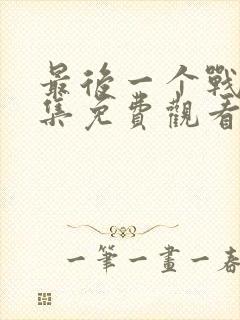 最後一个戰
集免費觀看
一筆一畫一春